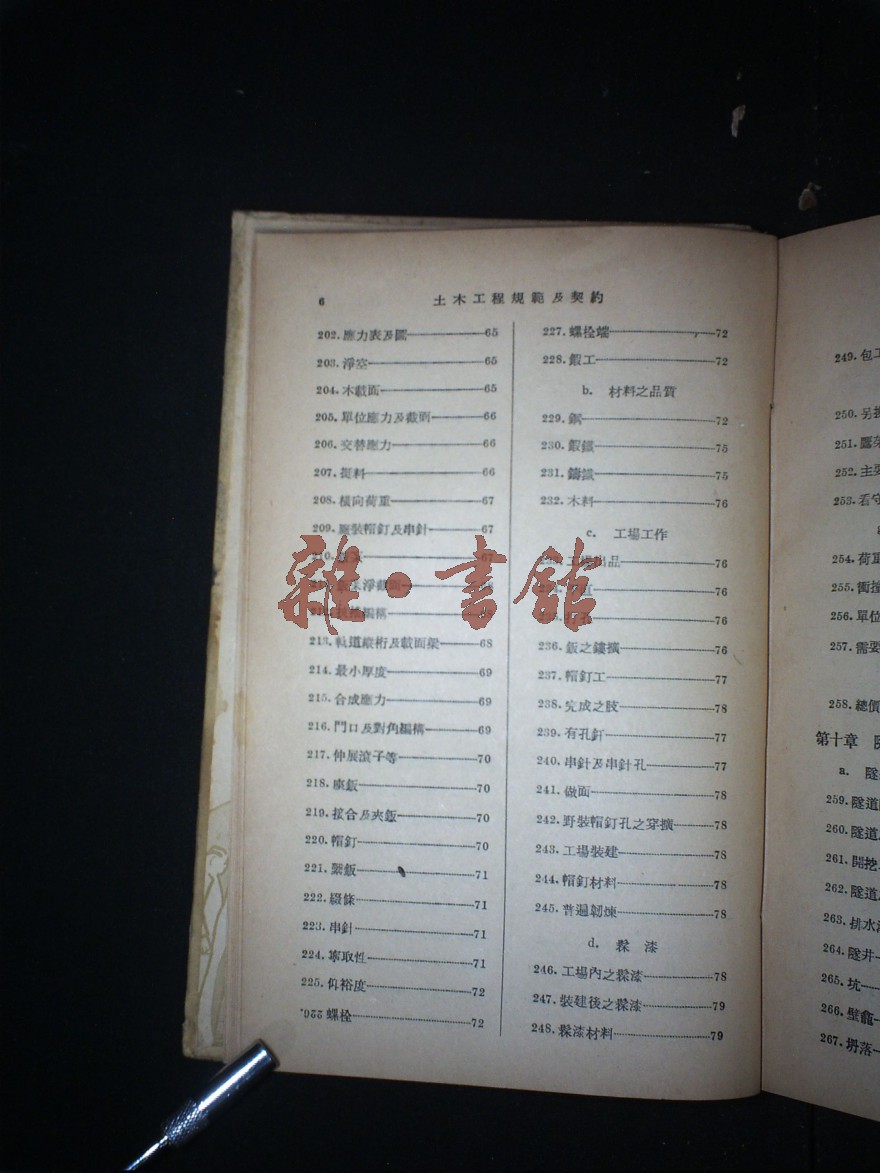 6 土木工程規範及契約
202. 應力表及圖 65
203. 淨空 65
204. 木載面 65
205. 單位應力及截面 66
206. 交替應力 66
207. 挺料 66
208. 橫向荷重 67
209. 廠裝帽釘及串針 67
210. 67
淨截面
213. 軌道縱桁及載面梁 68
214. 最小厚度 69
215. 合成應力 69
216. 門口及對角楅構 69
217. 伸展滾子等 70
218. 座鈑 70
219. 接合及夾鈑 70
220. 帽釘 70
221. 繫鈑 71
222. 綴條 71
223. 串針 71
224. 寧取性 71
225. 仰裕度 72
226. 螺栓 72
227. 螺栓端 72
228. 鍛工 72
b. 材料之品質
229. 鋼 72
230. 鍛鐵 75
231. 鑄鐵 75
232. 木料 76
c. 工場工作
出品 76
76
76
236. 鈑之鏤擴 76
237. 帽釘工 77
238. 完成之肢 78
239. 有孔釘 77
240. 串針及串針孔 77
241. 做面 78
242. 野裝帽釘孔之穿擴 78
243. 工場裝建 78
244. 帽釘材料 78
245. 普遍韌煉 78
d. 髹漆
246. 工場內之髹漆 78
247. 裝建後之髹漆 79
248. 髹漆材料 79
雜·書館
249. 包工
250. 另
251.
252. 主要
253. 看守
254. 荷重
255. 衝撞
256. 單位
257. 需要
258. 總價
第十章
a. 隧
259. 隧道
260. 隧道
261. 開挖
262. 隧道
263. 排水
264. 隧井
265. 坑
266. 壁龕
267. 坍落